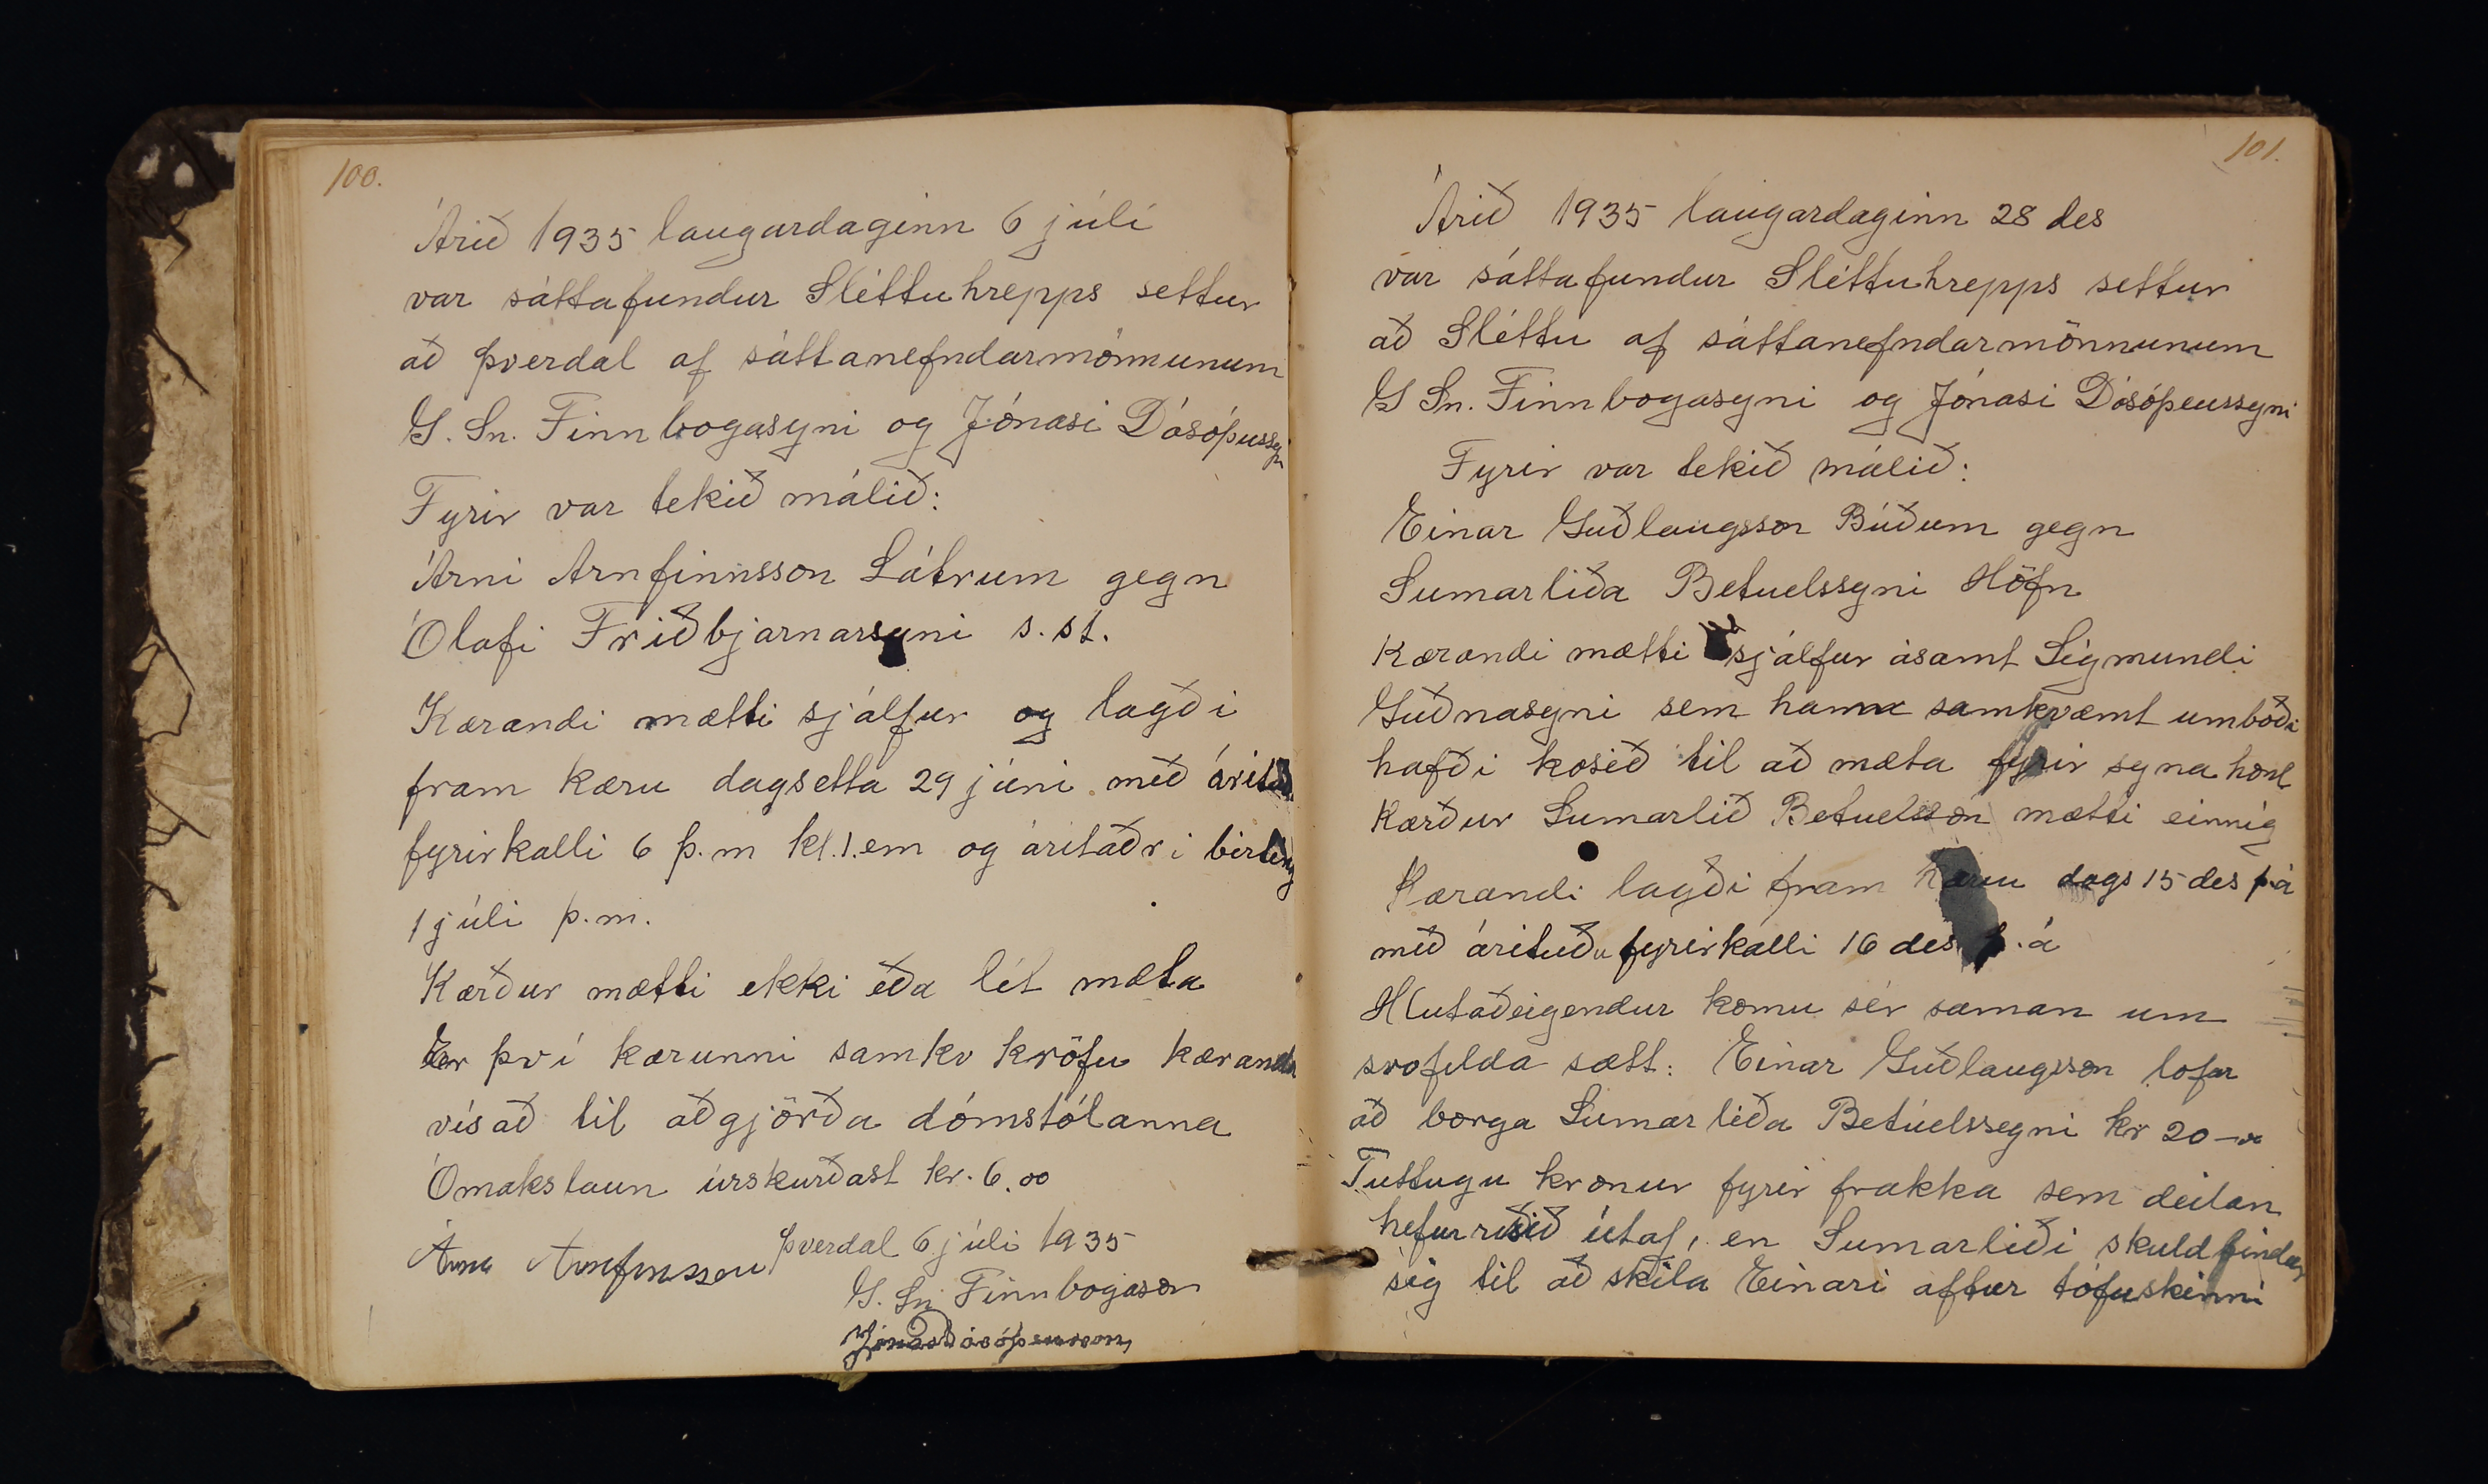 100.
Árið 1935 laugardaginn 6 júlí
var sáttafundur Sléttuhrepps settur
að Þverdal af sáttanefndarmönnunum
G. Sn. Finnbogasyni og Jónasi Dósóþussyni
Fyrir var tekið málið:
Árni Arnfinnsson Látrum gegn
Ólafi Friðbjarnarsyni s.st.
Kærandi mætti sjálfur og lagði
fram kæru dagsetta 29 júni með
fyrirkalli 6 þ.m kl.1.em og áritaðri birting
1 júli þ.m.
Kærður mætti ekki eða lét mæta
Er því kærunni samkv kröfu kæranda
vísað til aðgjörða dómstólanna
Ómakslaun úrskurðast kr. 6.00
Þverdal 6 júli 1935
Árni Arnfinnsson
G. Sn Finnbogason
Jónas Dósóþeusson
101.
Árið 1935 laugardaginn 28 des
var sáttafundur Sléttuhrepps settur
að Sléttu af sáttanefndarmönnunum
G Sn. Finnbogasyni og Jónasi Dósóþeussyni
Fyrir var tekið málið:
Einar Guðlaugsson Búðum gegn
Sumarliða Betuelssyni Höfn
Kærandi mætti sjálfur ásamt Sigmundi
Guðnasyni sem hann samkvæmt umboði
hafði kosið til að mæta fyrir syna hönd
Kærður Sumarlið Betuelsson mætti einnig
Kærandi lagði fram kæru dags 15 des þ á
með árituðu fyrirkalli 16 des þ.á
Hlutaðeigendur komu sér saman um
svofelda sætt: Einar Guðlaugsson lofar
að borga Sumarliða Betúelssyni kr 20-00
Tuttugu krónur fyrir frakka sem deilan
hefur risið útaf, en Sumarliði skuldbindur
sig til að skila Einari aftur tófuskinni